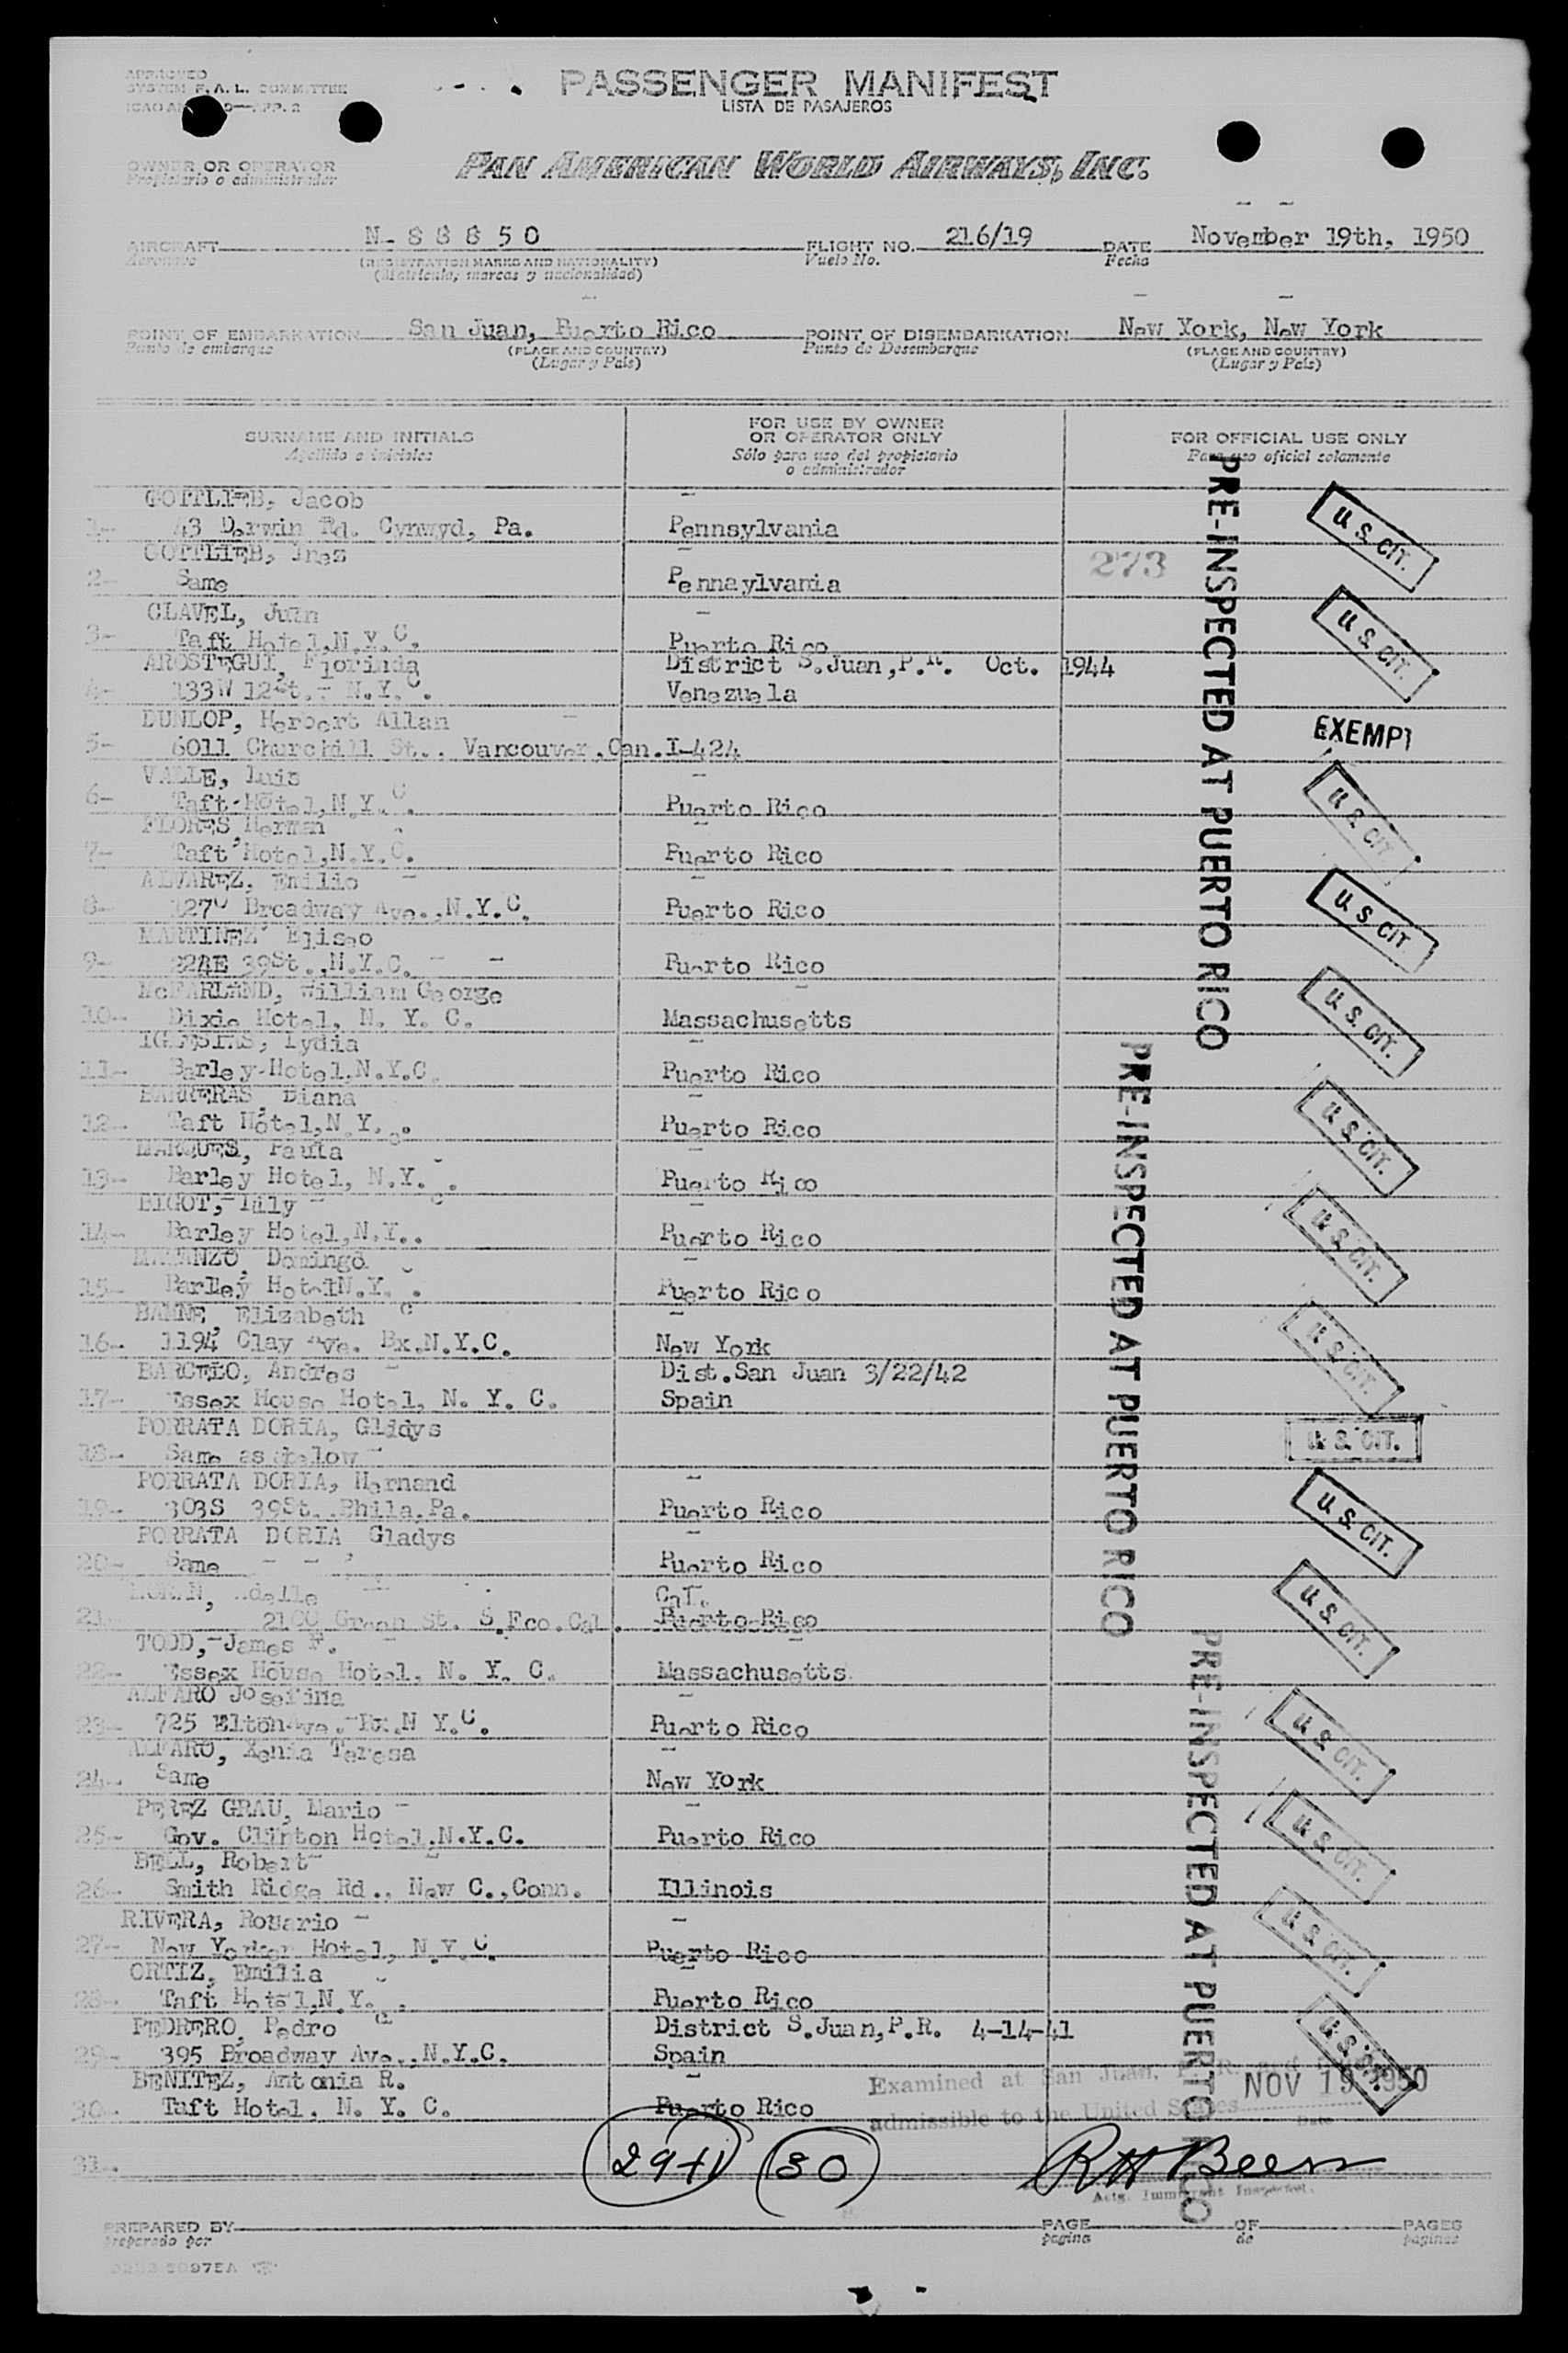 APPROVED
SYSTEM F.A.L. COMMITTEE
PASSENGER MANIFEST
LISTA DE PASAJEROS
OWNER OR OPERATOR
Propietario o administrador
PAN AMERICAN WORLD AIRWAYS, INC.
AIRCRAFT N-88850 FLIGHT NO. 216/19 DATE November 19th, 1950
Aeronave (REGISTRATION MARKS AND NATIONALITY) Vuelo No. Fecha
(Matrícula, marcas y nacionalidad)
POINT OF EMBARKATION San Juan, Puerto Rico POINT OF DISEMBARKATION New York, New York
Punto de embarque (PLACE AND COUNTRY) Punto de Desembarque (PLACE AND COUNTRY)
(Lugar y País) (Lugar y País)
SURNAME AND INITIALS
Apellido e iniciales
FOR USE BY OWNER
OR OPERATOR ONLY
Sólo para uso del propietario
o administrador
FOR OFFICIAL USE ONLY
Para uso oficial solamente
GOTTLIEB, Jacob
1- 43 Derwin Rd. Cynwyd, Pa. Pennsylvania
GOTTLIEB, Ines 273
2- Same Pennaylvania
CLAVEL, Juan
3- Taft Hotel,N.Y.C. Puerto Rico
AROSTEGUI, Florinda District S.Juan,P.R. Oct. 1944
4- 133W 12St.- N.Y.C. Venezuela
DUNLOP, Herbert Allan
5- 6011 Churchill St., Vancouver,Can. I-424
VALLE, Luis
6- Taft Hotel,N.Y.C. Puerto Rico
FLORES, Herman
7- Taft Hotel,N.Y.C. Puerto Rico
ALVAREZ, Emilio
8- Broadway Ave.,N.Y.C. Puerto Rico
MARTINEZ Eliseo
9- 224E 39St.,N.Y.C. Puerto Rico
McFARLAND, William George
10- Dixie Hotel, N. Y. C. Massachusetts
IGLESIAS, Lydia
11- Barley Hotel,N.Y.C. Puerto Rico
BARRERAS, Diana
12- Taft Hotel,N.Y.C. Puerto Rico
MARQUES, Paula
13- Barley Hotel, N.Y.C. Puerto Rico
BIGOT, Lily
14- Barley Hotel,N.Y.C. Puerto Rico
Domingo
15- Barley Hotel N.Y.C. Puerto Rico
Elizabeth
16- 1194 Clay Ave. Bx.N.Y.C. New York
BARCELO, Andres Dist.San Juan 3/22/42
17- Essex House Hotel, N. Y. C. Spain
PORRATA DORIA, Glidys
18- Same as below
PORRATA DORIA, Hernand
19- 303S 39St. Phila.Pa. Puerto Rico
PORRATA DORIA Gladys
20- Same Puerto Rico
Cal.
21- 2100 Green St. S.Fco.Cal. Puerto Rico
TODD, James F.
22- Essex House Hotel, N. Y. C. Massachusetts
ALFARO Josefina
23- 725 Elton Ave. Bx.N Y.C. Puerto Rico
ALFARO, Xenia Teresa
24- Same New York
PEREZ GRAU, Mario
25- Gov. Clinton Hotel,N.Y.C. Puerto Rico
BELL, Robert
26- Smith Ridge Rd., New C.,Conn. Illinois
RIVERA, Rosario
27- New Yorker Hotel, N.Y.C. Puerto Rico
ORTIZ, Emilia
28- Taft Hotel,N.Y.C. Puerto Rico
PEDRERO, Pedro District S.Juan,P.R. 4-14-41
29- 395 Broadway Ave.,N.Y.C. Spain
BENITEZ, Antonia R.
30- Taft Hotel, N. Y. C. Puerto Rico
31-
PRE-INSPECTED AT PUERTO RICO
PRE-INSPECTED AT PUERTO RICO
PRE-INSPECTED AT PUERTO RICO
U.S. CIT.
U.S. CIT.
EXEMPT
U.S. CIT.
U.S. CIT.
U.S. CIT.
U.S. CIT.
U.S. CIT.
U.S. CIT.
U.S. CIT.
U.S. CIT.
U.S. CIT.
U.S. CIT.
U.S. CIT.
U.S. CIT.
U.S. CIT.
Examined at San Juan, P.R. and
admissible to the United States NOV 19 1950
Date
29+1 30
RH Beers
Actg. Immigrant Inspector.
PREPARED BY PAGE OF PAGES
preparado por página de páginas